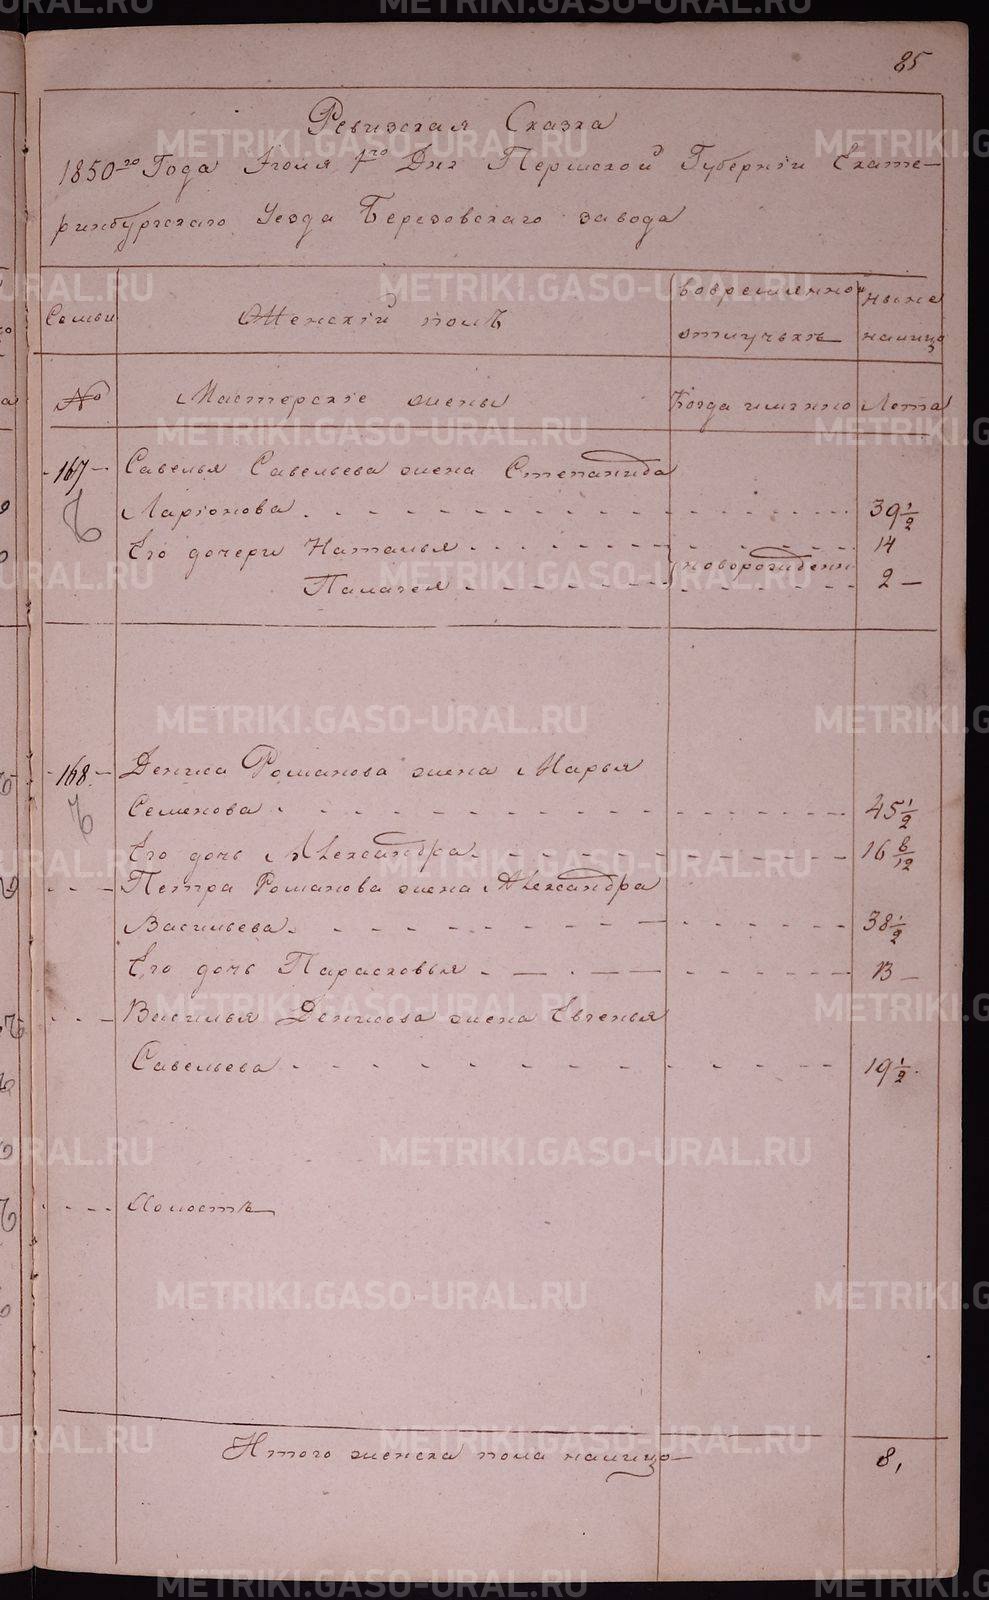 85
Ревизская Сказка
1850го Года Іюля 1го Дня Пермской Губерніи Екате-
ринбургскаго Уезда Березовскаго завода
Семьи
Женскій полъ
Вовременной отлучкѣ
Ныне налицо
№
Мастерскіе жены
Когда имянно
Лета
167
Савелья Савельева жена Степанида
Ларіонова 39 1/2
Его дочери Наталья 14
Палагея новорожденн 2
168
Дениса Романова жена Марья
Семенова 45 1/2
Его дочь Александра 16 8/12
Петра Романова жена Александра
Васильева 38 1/2
Его дочь Парасковья 13
Василья Денисова жена Евгенья
Савельева 19 1/2
Итого женска пола налицо 8,
METRIKI.GASO-URAL.RU